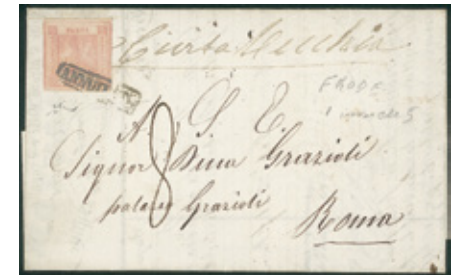 Civita Vecchia
FRODE
A. S. E.
8
Signor Duca Grazioli
palazzo Grazioli
Roma